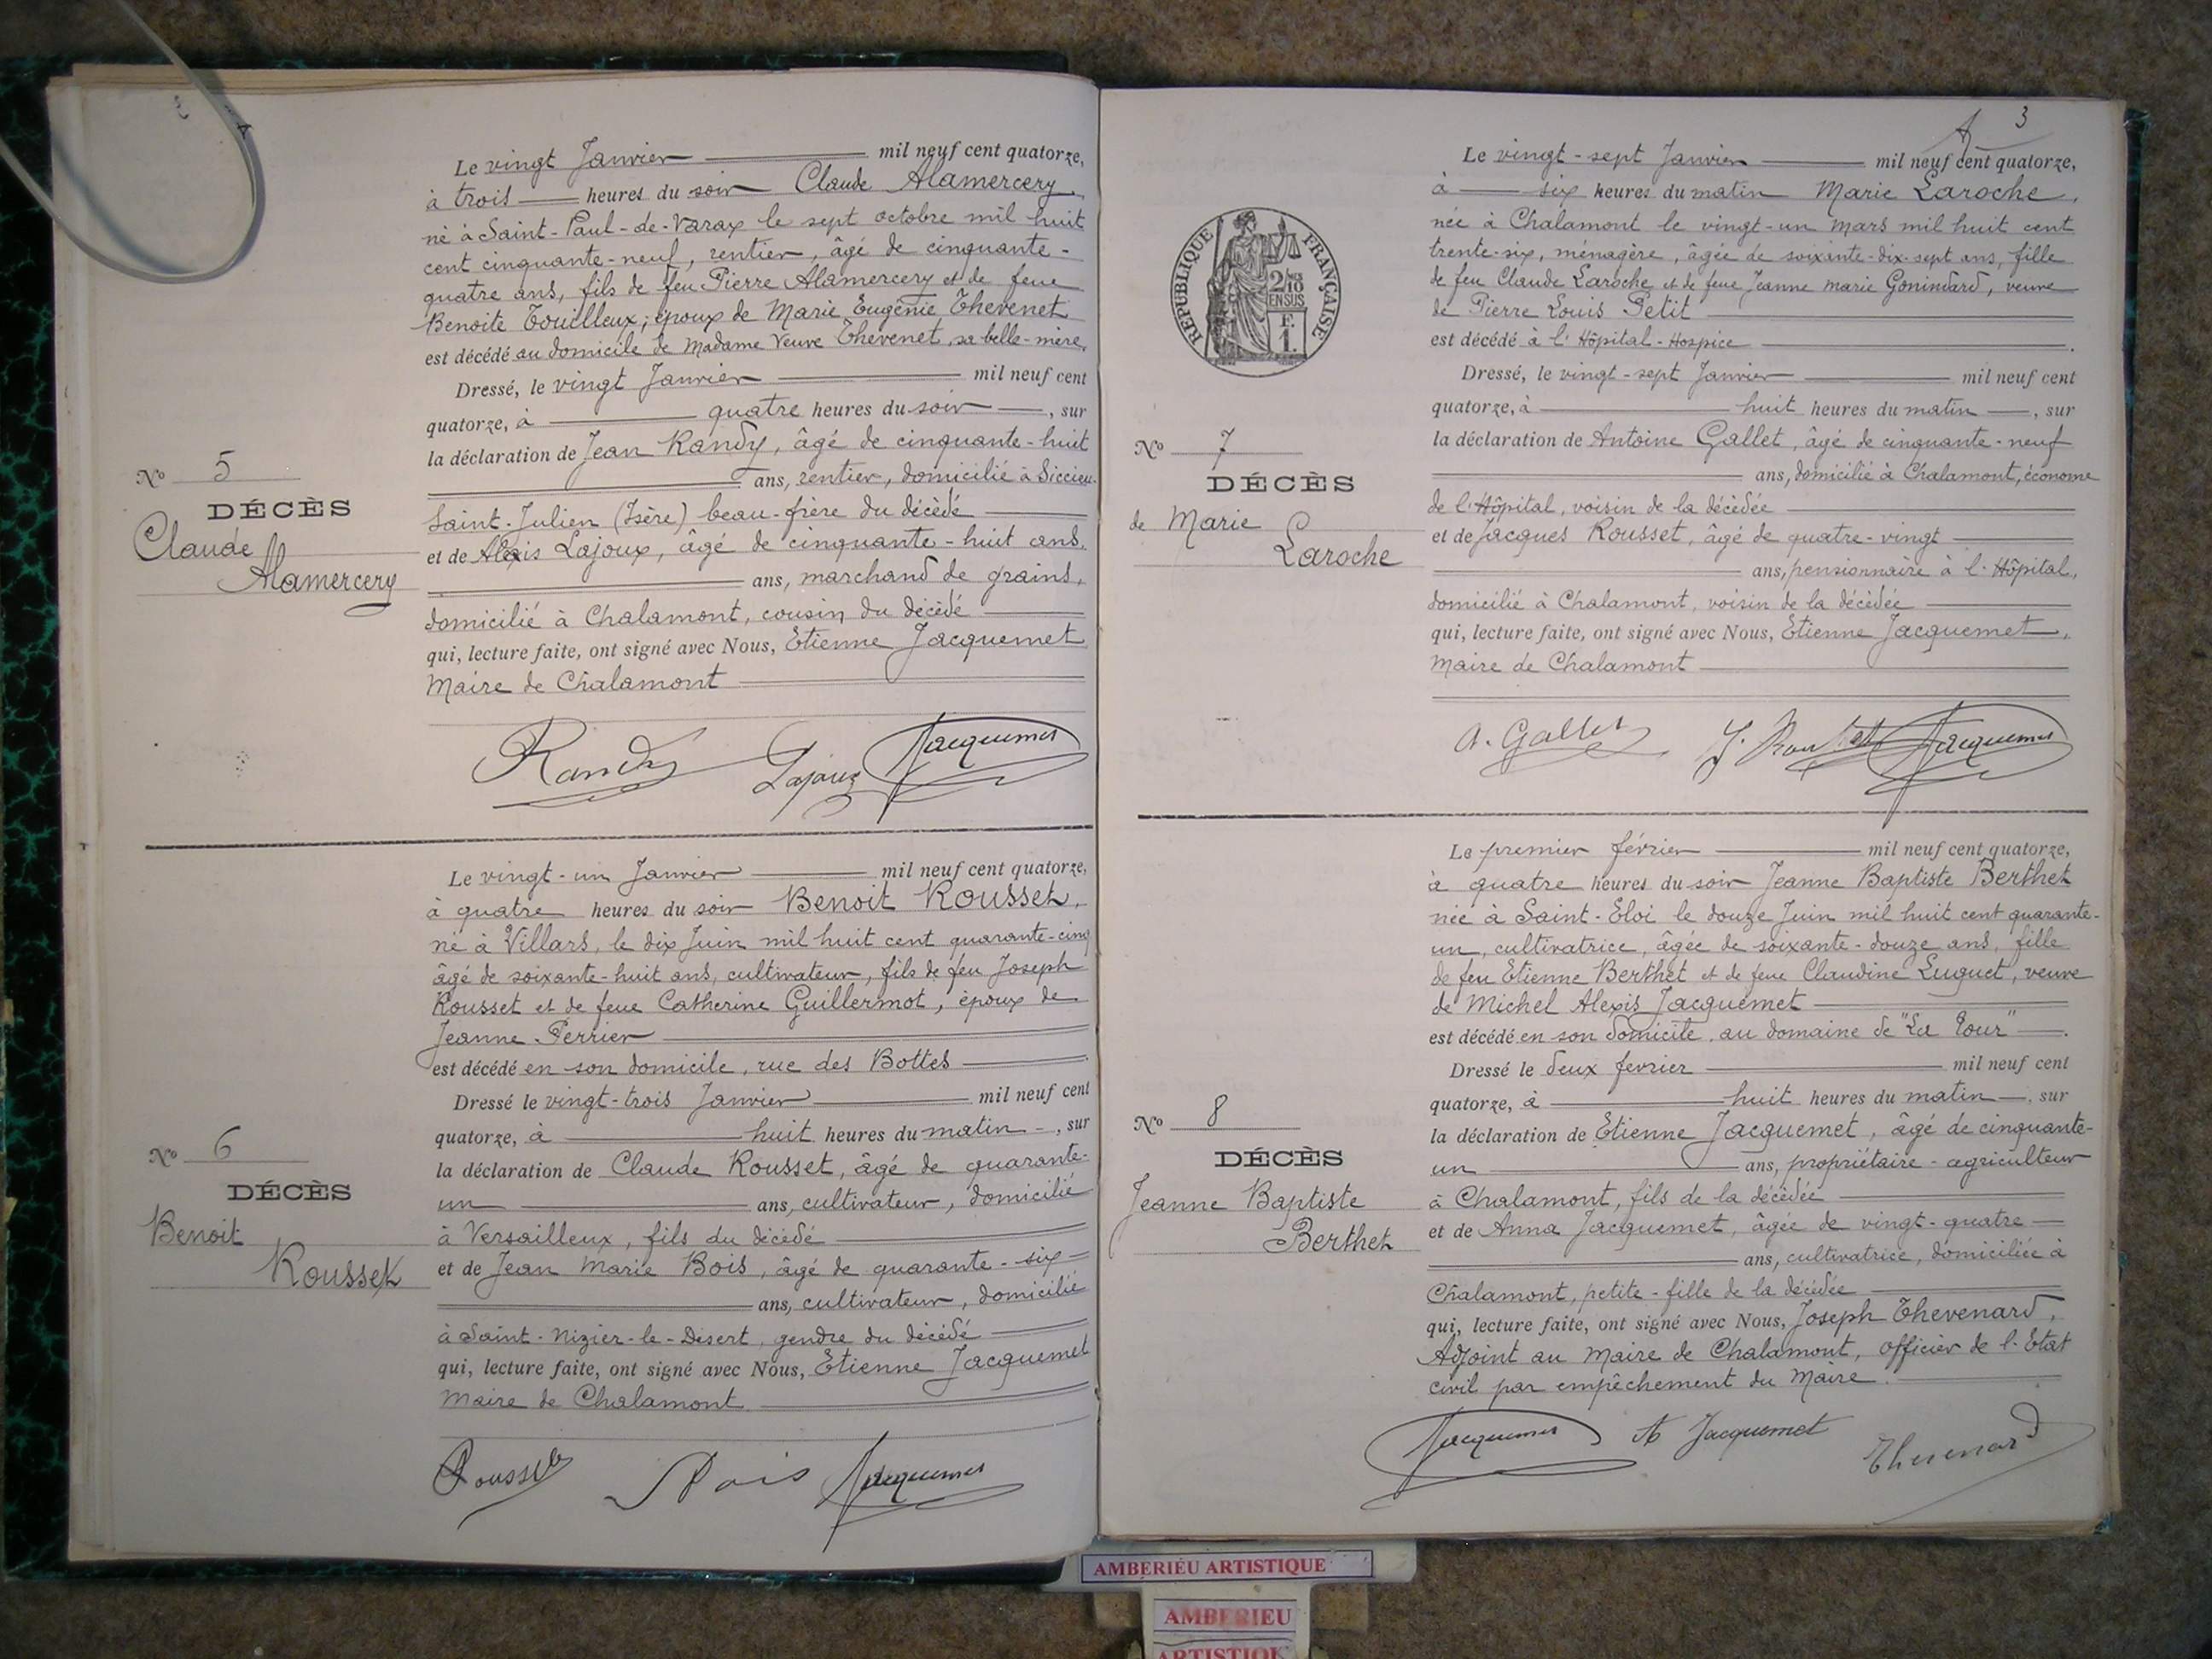 Le vingt Janvier mil neuf cent quatorze,
à trois heures du soir Claude Alamercery,
né à Saint-Paul-de-Varax le sept octobre mil huit
cent cinquante-neuf, rentier, âgé de cinquante-
quatre ans, fils de feu Pierre Alamercery et de feue
Benoite Touilleux, époux de Marie Eugénie Thevenet
est décédé au domicile de Madame Veuve Thevenet, sa belle-mère.
Dressé, le vingt Janvier mil neuf cent
quatorze, à quatre heures du soir, sur
la déclaration de Jean Randy, âgé de cinquante-huit
ans, rentier, domicilié à Siccieu-
Saint-Julien (Isère) beau-frère du décédé
et de Alexis Lajoux, âgé de cinquante-huit ans,
ans, marchand de grains,
domicilié à Chalamont, cousin du décédé
qui, lecture faite, ont signé avec Nous, Etienne Jacquemet
Maire de Chalamont
Randy Lajoux Jacquemet
No 5
DÉCÈS
Claude
Alamercery
Le vingt-un Janvier mil neuf cent quatorze,
à quatre heures du soir Benoit Rousset,
né à Villars, le dix Juin mil huit cent quarante-cinq
âgé de soixante-huit ans, cultivateur, fils de feu Joseph
Rousset et de feue Catherine Guillermot, époux de
Jeanne Perrier
est décédé en son domicile, rue des Bottes
Dressé le vingt-trois Janvier mil neuf cent
quatorze, à huit heures du matin, sur
la déclaration de Claude Rousset, âgé de quarante-
un ans, cultivateur, domicilié
à Versailleux, fils du décédé
et de Jean Marie Bois, âgé de quarante-six
ans, cultivateur, domicilié
à Saint-Nizier-le-Désert, gendre du décédé
qui, lecture faite, ont signé avec Nous, Etienne Jacquemet
Maire de Chalamont.
Rousset Bois Jacquemet
No 6
DÉCÈS
Benoit
Rousset
3
Le vingt-sept Janvier mil neuf cent quatorze,
à six heures du matin Marie Laroche,
née à Chalamont le vingt-un Mars mil huit cent
trente-six, ménagère, âgée de soixante-dix-sept ans, fille
de feu Claude Laroche et de feue Jeanne Marie Gonindard, veuve
de Pierre Louis Petit
est décédé à l'Hôpital-Hospice.
Dressé, le vingt-sept Janvier mil neuf cent
quatorze, à huit heures du matin, sur
la déclaration de Antoine Gallet, âgé de cinquante-neuf
ans, domicilié à Chalamont, économe
de l'Hôpital, voisin de la décédée
et de Jacques Rousset, âgé de quatre-vingt
ans, pensionnaire à l'Hôpital,
domicilié à Chalamont, voisin de la décédée
qui, lecture faite, ont signé avec Nous, Etienne Jacquemet,
Maire de Chalamont
A. Gallet J. Rousset Jacquemet
RÉPUBLIQUE FRANÇAISE
2/10 EN SUS
F. 1.
No 7
DÉCÈS
de Marie
Laroche
Le premier février mil neuf cent quatorze,
à quatre heures du soir Jeanne Baptiste Berthet
née à Saint-Eloi le douze Juin mil huit cent quarante-
un, cultivatrice, âgée de soixante-douze ans, fille
de feu Etienne Berthet et de feue Claudine Luguet, veuve
de Michel Alexis Jacquemet
est décédé en son domicile, au domaine de "La Tour".
Dressé le deux février mil neuf cent
quatorze, à huit heures du matin, sur
la déclaration de Etienne Jacquemet, âgé de cinquante-
un ans, propriétaire-agriculteur
à Chalamont, fils de la décédée
et de Anna Jacquemet, âgée de vingt-quatre
ans, cultivatrice, domiciliée à
Chalamont, petite-fille de la décédée
qui, lecture faite, ont signé avec Nous, Joseph Thevenard,
Adjoint au Maire de Chalamont, officier de l'Etat
civil par empêchement du Maire.
Jacquemet A Jacquemet Thevenard
No 8
DÉCÈS
Jeanne Baptiste
Berthet
AMBERIEU ARTISTIQUE
AMBERIEU
ARTISTIQUE